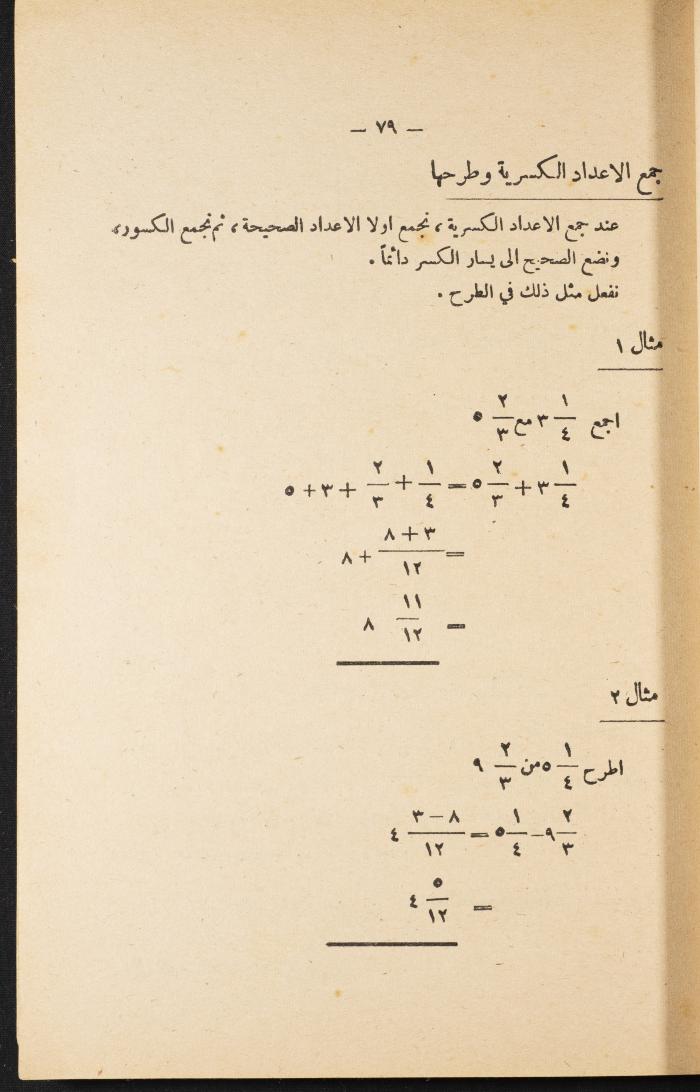 – ٧٩ –
جمع الاعداد الكسرية وطرحها
عند جمع الاعداد الكسرية ، نجمع اولا الاعداد الصحيحة ، ثم نجمع الكسور ،
ونضع الصحيح الى يسار الكسر دائماً .
نفعل مثل ذلك في الطرح .
مثال ١
اجمع ١/٤ ٣ مع ٢/٣ ٥
١/٤ ٣ + ٢/٣ ٥ = ١/٤ + ٢/٣ + ٣ + ٥
= (٣ + ٨)/١٢ + ٨
= ١١/١٢ ٨
مثال ٢
اطرح ١/٤ ٥ من ٢/٣ ٩
٢/٣ ٩ – ١/٤ ٥ = (٨ – ٣)/١٢ ٤
= ٥/١٢ ٤